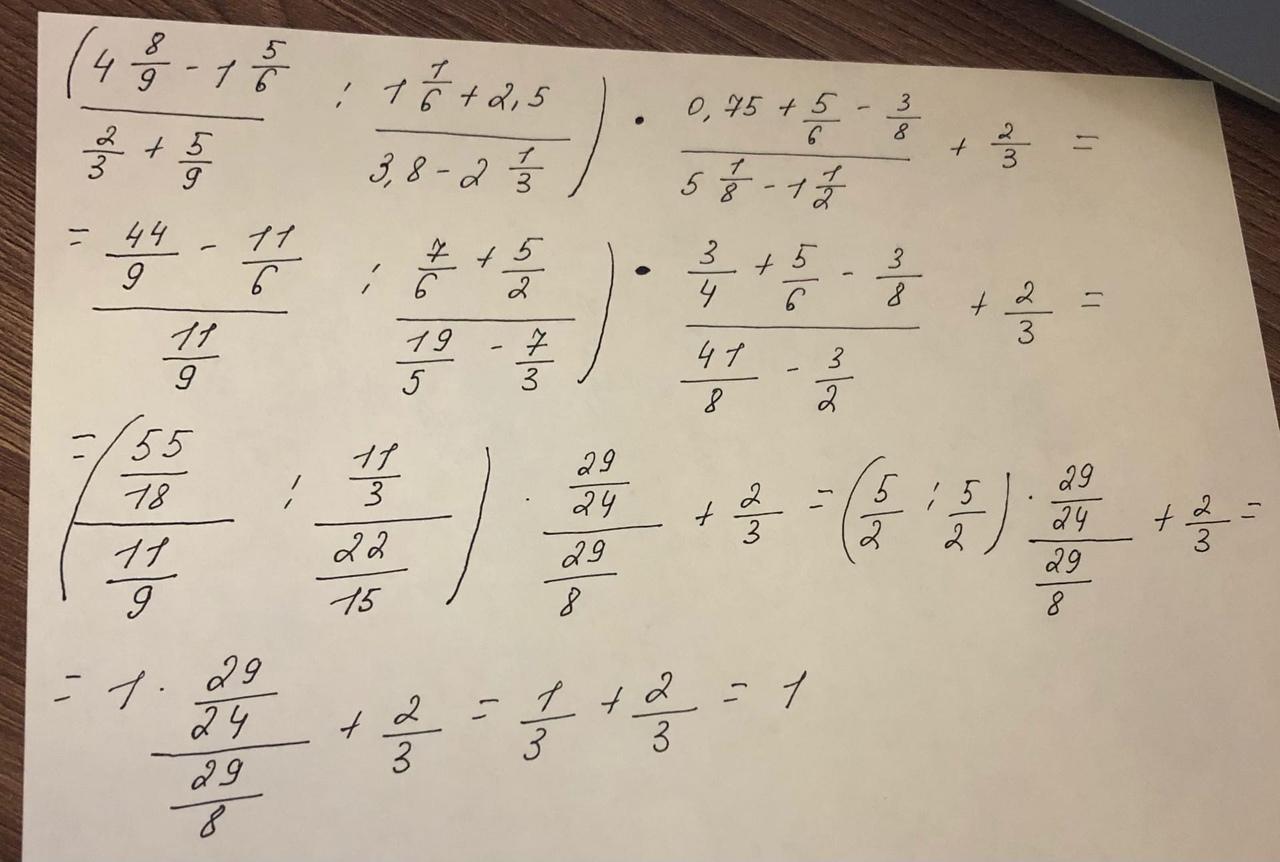 (4 8/9 - 1 5/6 / 2/3 + 5/9 : 1 1/6 + 2,5 / 3,8 - 2 1/3) · 0,75 + 5/6 - 3/8 / 5 1/8 - 1 1/2 + 2/3 =
= 44/9 - 11/6 / 11/9 : 7/6 + 5/2 / 19/5 - 7/3) · 3/4 + 5/6 - 3/8 / 41/8 - 3/2 + 2/3 =
= (55/18 / 11/9 : 11/3 / 22/15) · 29/24 / 29/8 + 2/3 = (5/2 : 5/2) · 29/24 / 29/8 + 2/3 =
= 1 · 29/24 / 29/8 + 2/3 = 1/3 + 2/3 = 1